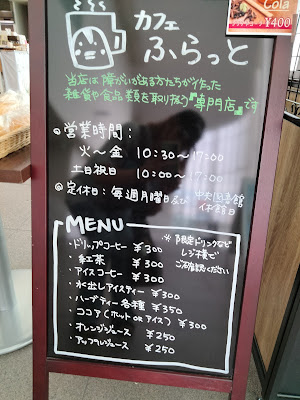 Cola
¥400
カフェ
ふらっと
当店は障がいが出る方たちが作った
雑貨や食品類を取り扱う『専門店』です
◎営業時間:
火〜金 10:30〜17:00
土日祝日 10:00〜17:00
◎定休日:毎週月曜日及び中央図書館
休館日
MENU
※限定ドリンクなど
レジ横で
ご確認ください
・ドリップコーヒー ¥300
・紅茶 ¥300
・アイスコーヒー ¥300
・水出しアイスティー ¥300
・ハーブティー各種 ¥350
・ココア(ホット or アイス) ¥300
・オレンジジュース ¥250
・アップルジュース ¥250